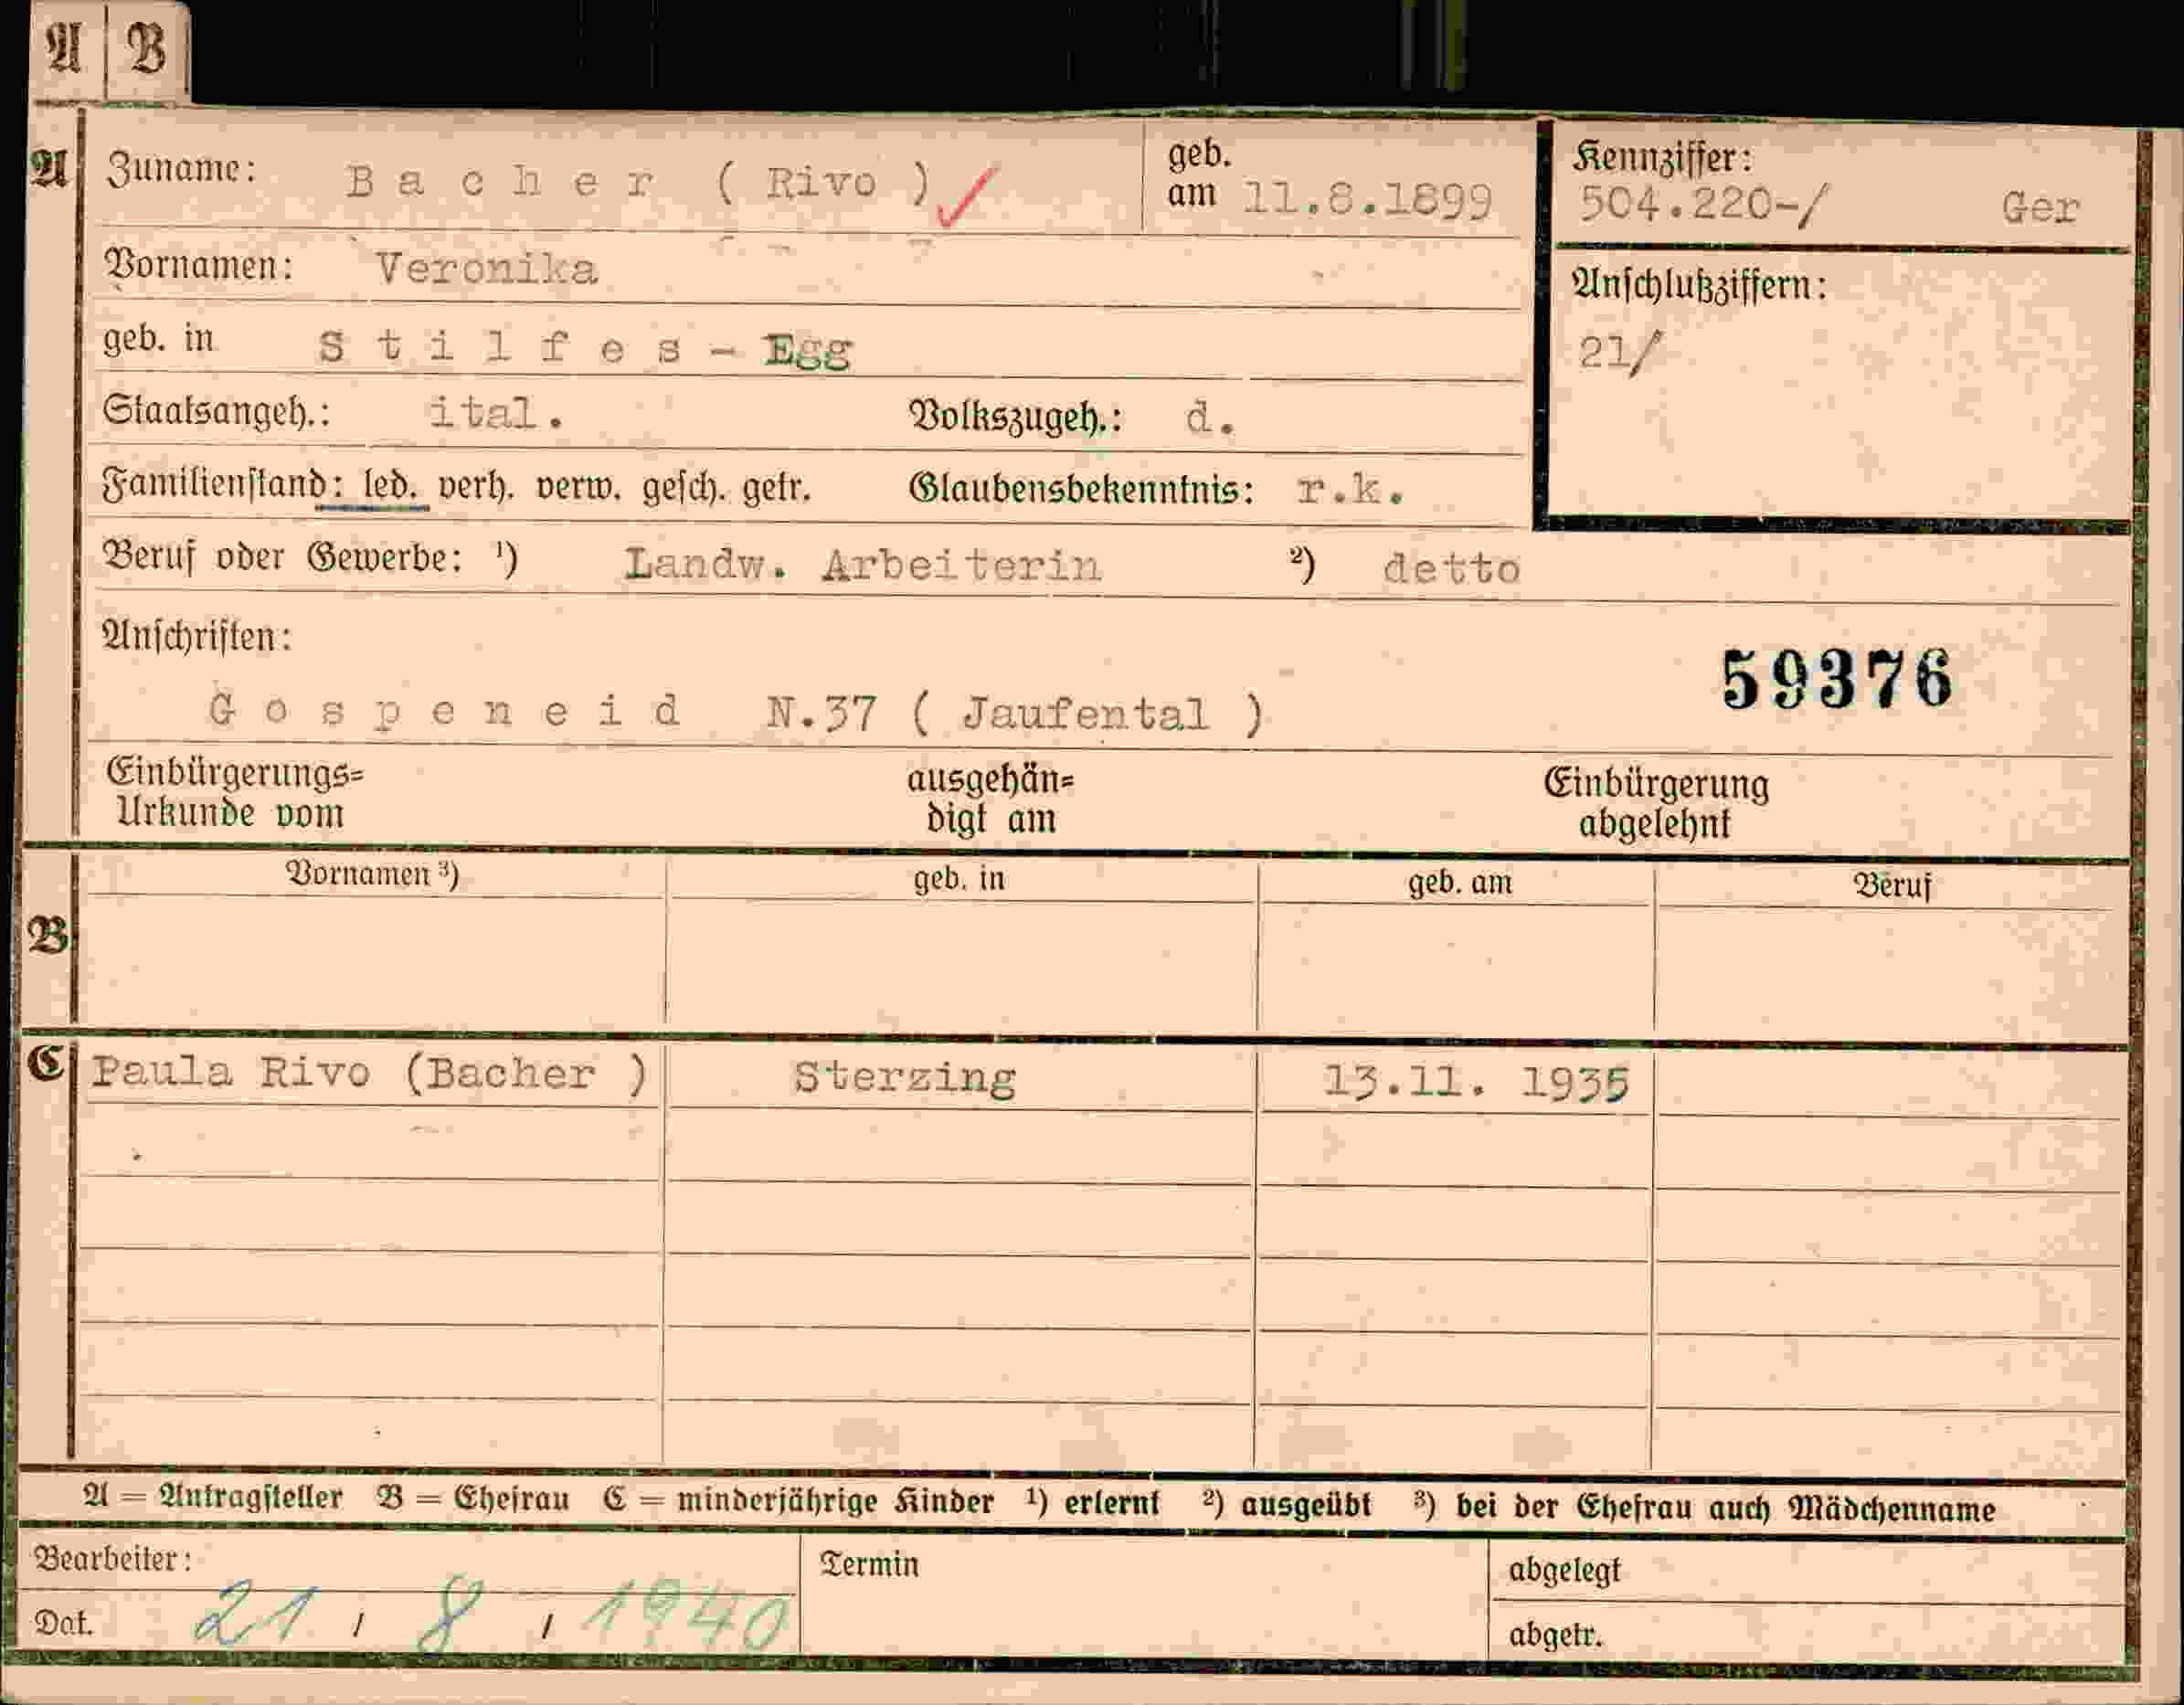 A B
A Zuname: Bacher ( Rivo ) geb. am 11.8.1899 Kennziffer: 504.220-/ Ger
Vornamen: Veronika
Anschlußziffern:
geb. in Stilfes - Egg
21/
Staatsangeh.: ital. Volkszugeh.: d.
Familienstand: led. verh. verw. gesch. getr. Glaubensbekenntnis: r.k.
Beruf oder Gewerbe: ¹) Landw. Arbeiterin ²) detto
Anschriften:
59376
Gospeneid N.37 ( Jaufental )
Einbürgerungs= ausgehän= Einbürgerung
Urkunde vom digt am abgelehnt
Vornamen ³) geb. in geb. am Beruf
B
C Paula Rivo (Bacher ) Sterzing 13.11. 1935
A = Antragsteller B = Ehefrau C = minderjährige Kinder ¹) erlernt ²) ausgeübt ³) bei der Ehefrau auch Mädchenname
Bearbeiter: Termin abgelegt
Dat. 21 / 8 / 1940 abgetr.